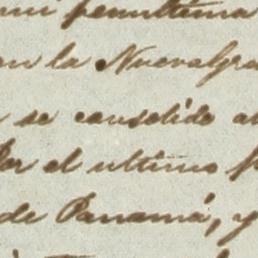 mi penultima
en la Nueva Gra
se consolide a
Por el ultimo p
de Panamá, y